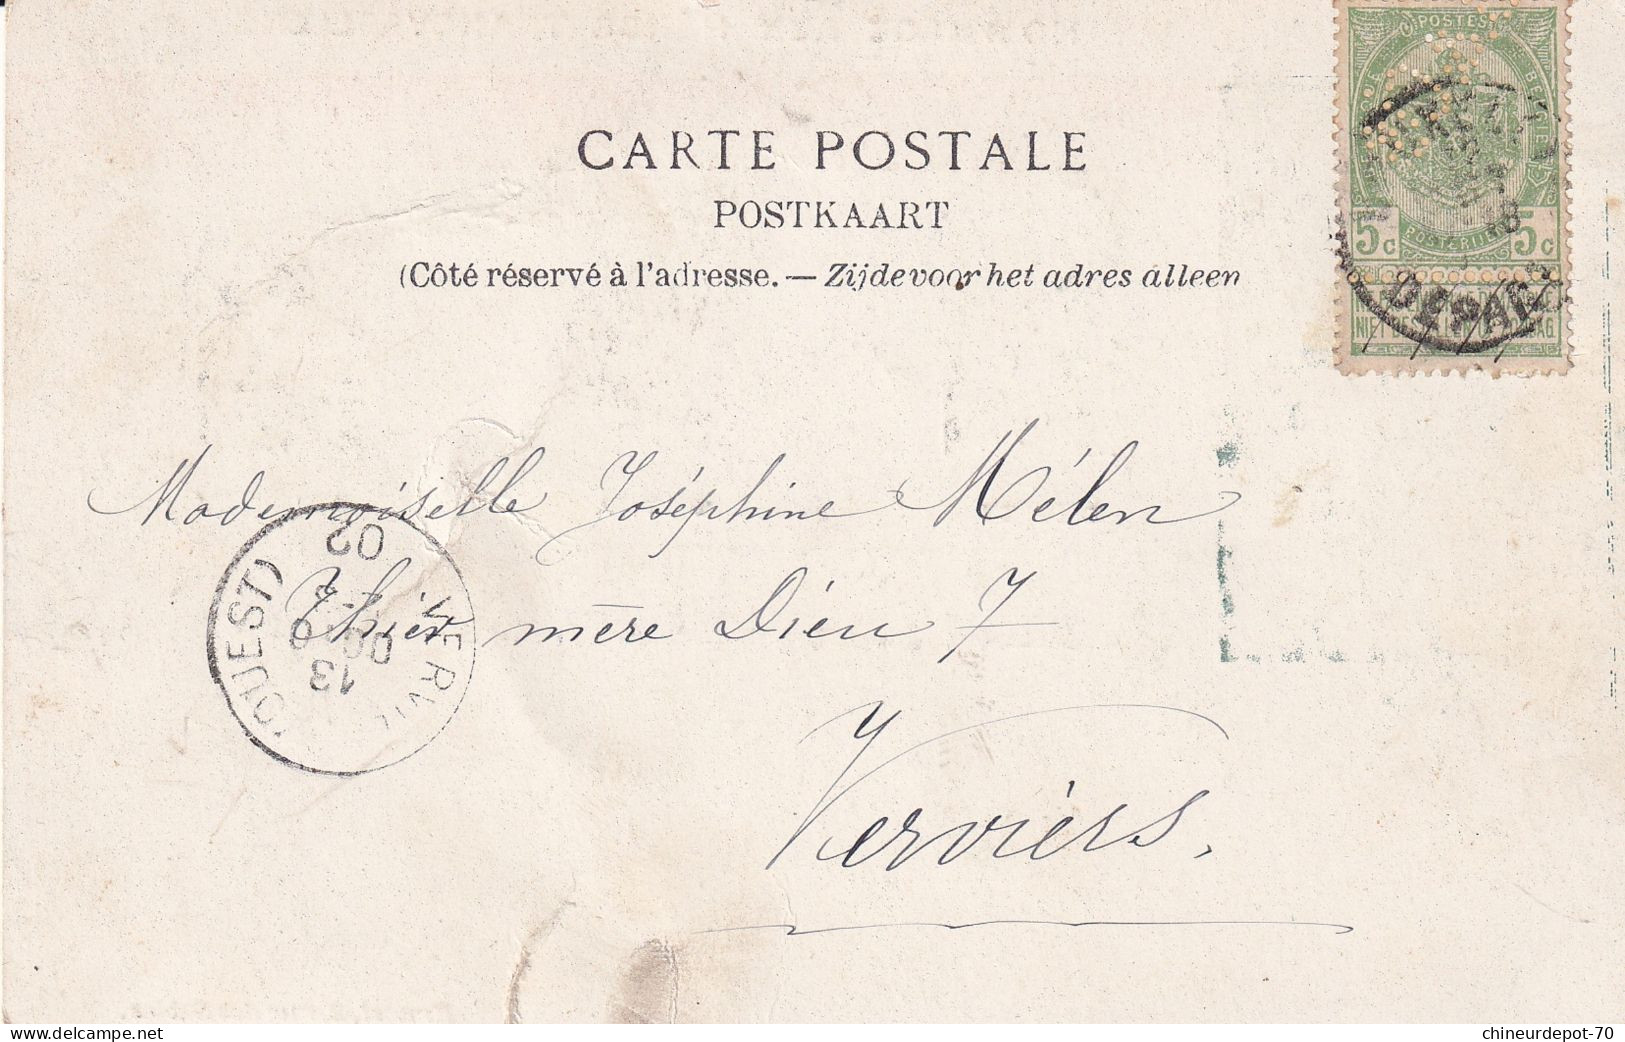 CARTE POSTALE
POSTKAART
(Côté réservé à l'adresse. — Zijde voor het adres alleen
POSTES
5c POSTERIJEN 5c
DEPART
Mademoiselle Joséphine Mélen
Thier mère Dieu 7
Verviers.
(OUEST)
13
02
delcampe.net
chineurdepot-70